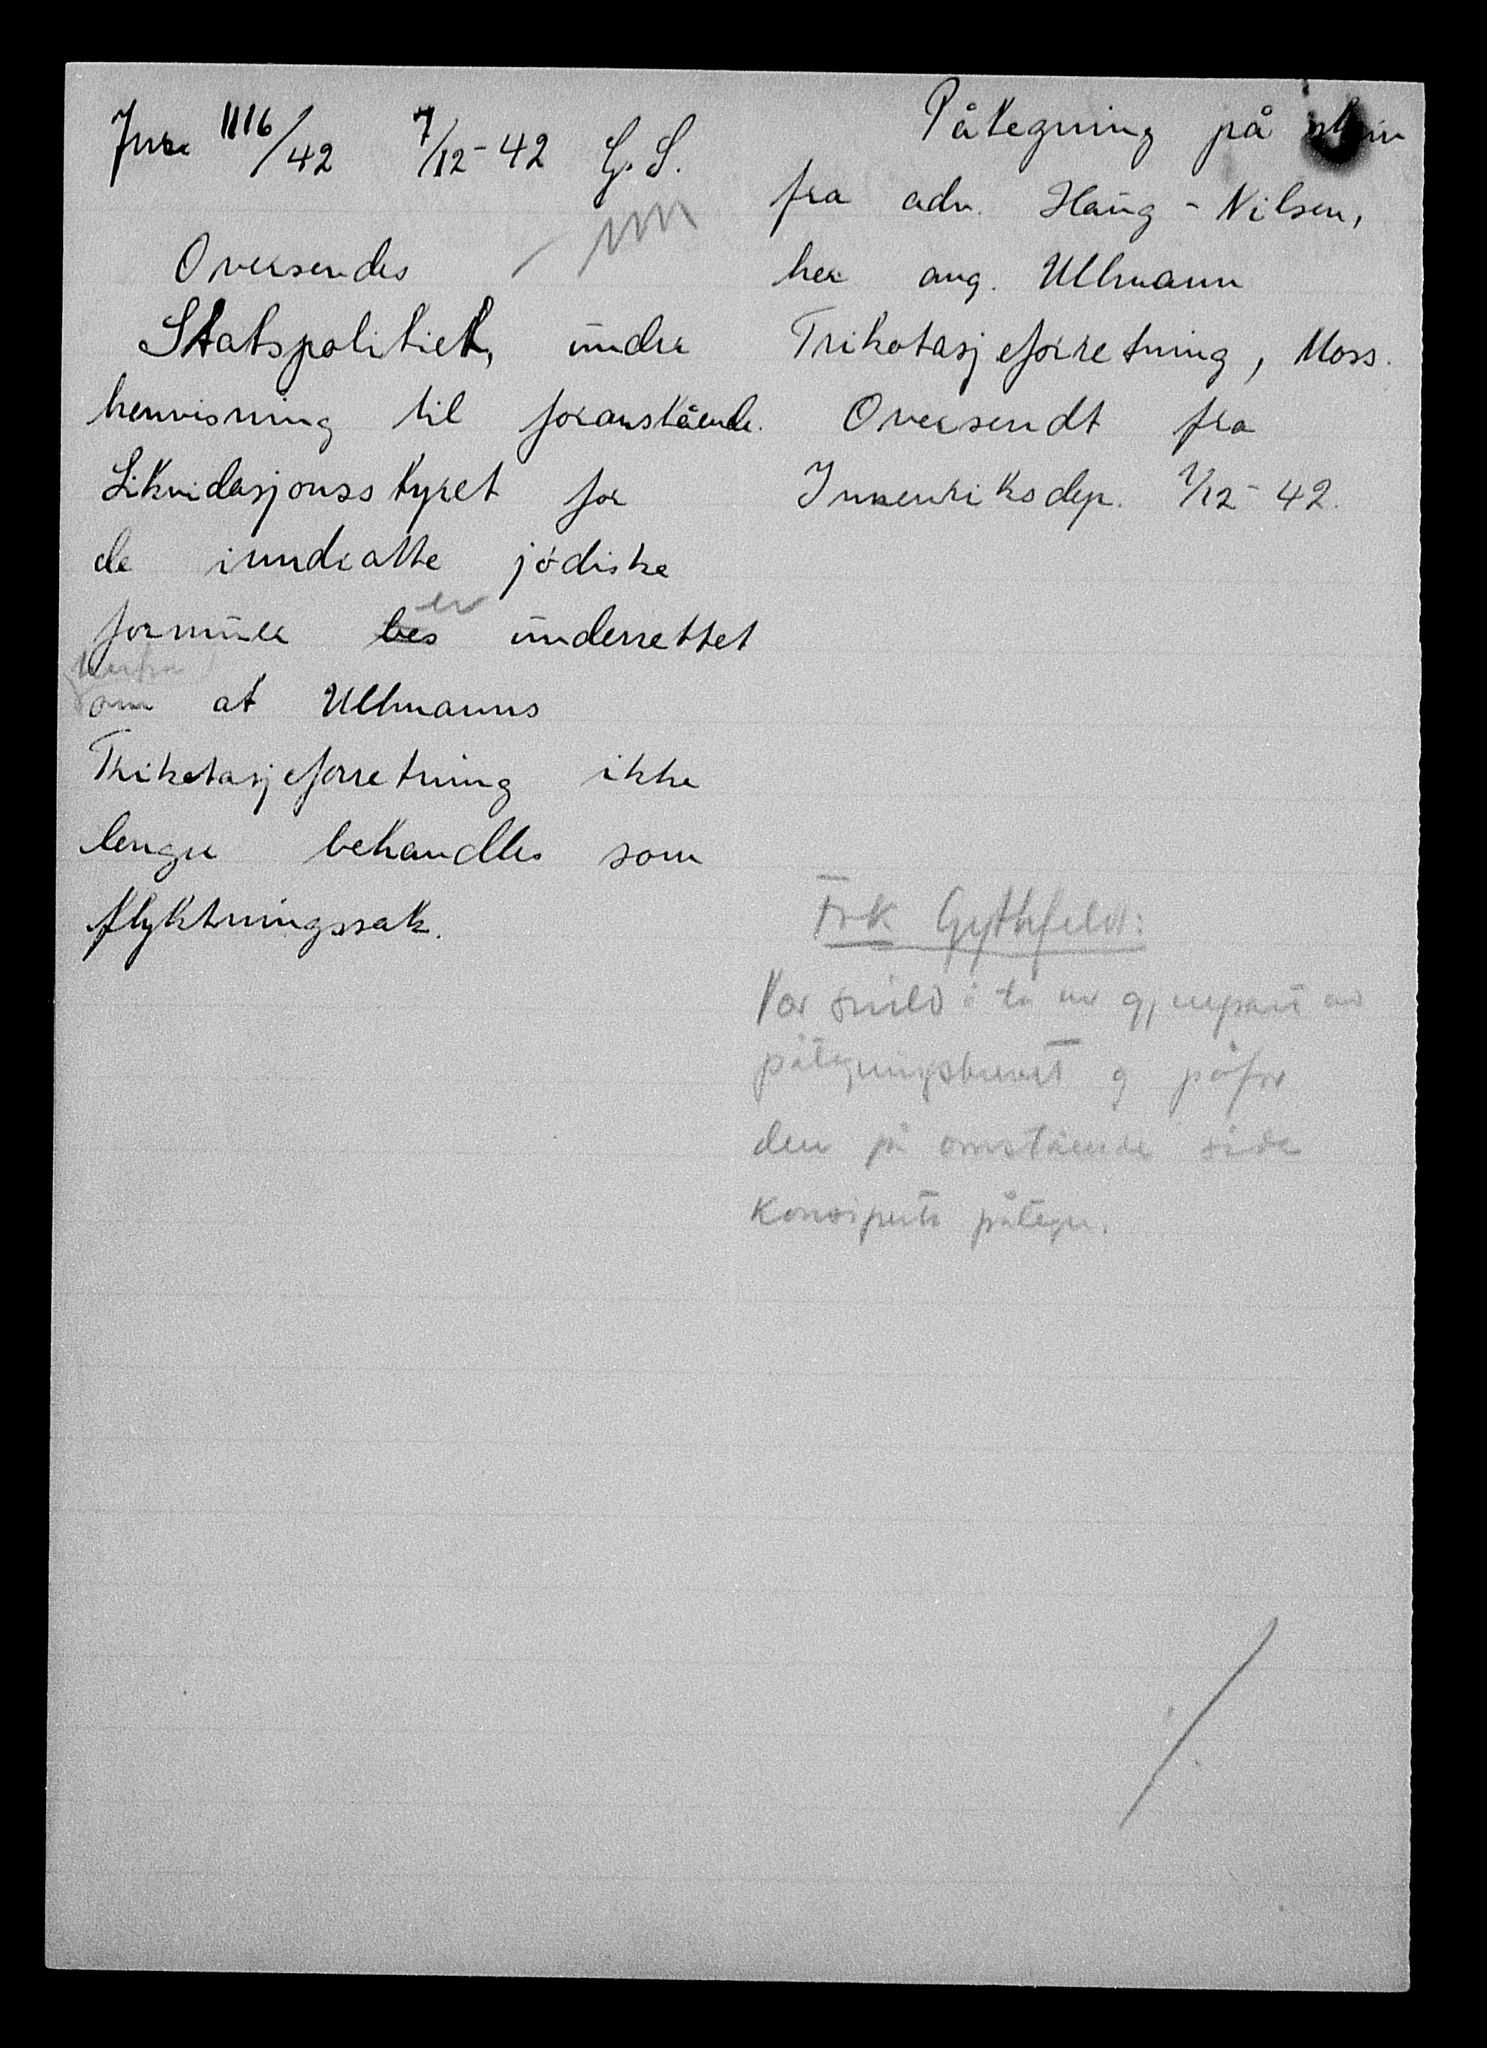 Jnr. 1116/42 7/12-42 G.S.
Oversendes
Statspolitiet, under
henvisning til foranstående.
Likvidasjonsstyret for
de inndratte jødiske
formuer bes er underrettet
herfra
om at Ullmanns
Trikotasjeforretning ikke
lenger behandles som
flyktningssak.
Påtegning på skriv
fra adv. Haug-Nilsen,
her ang. Ullmann
Trikotasjeforretning, Moss.
Oversendt fra
Innenriksdep. 1/12-42.
Frk Gythfeldt:
Vær snild å ta en gjenpart av
påtegningsbrevet og påfør
den på omstående side
konsiperte påtegn.